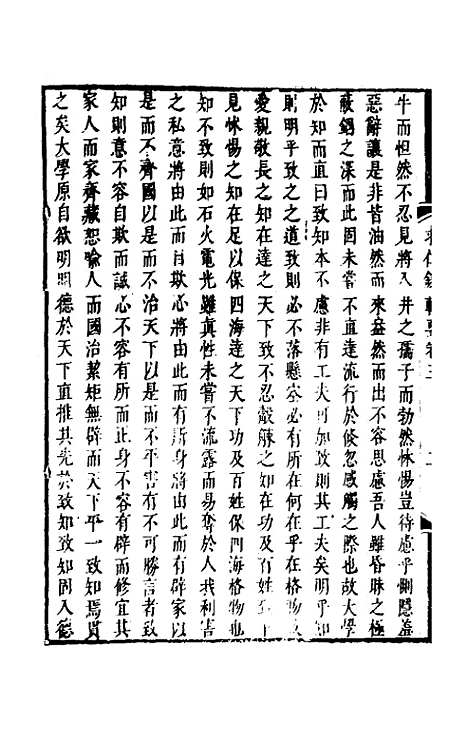 牛而怛然不忍見將入井之孺子而勃然怵惕豈待慮乎惻隱羞
惡辭讓是非皆油然而來盎然而出不容思慮吾人雖昏昧之極
蔽錮之深而此固未嘗不直達流行於倐忽感觸之際也故大學
於知而直曰致知本不慮非有工夫可加致則其工夫矣明乎知
則明乎致之之道致則必不落懸空必有所在何在乎在格物
愛親敬長之知在達之天下致不忍觳觫之知在功及百姓
見怵惕之知在足以保四海達之天下功及百姓保四海格物也
知不致則如石火電光雖真性未嘗不流露而易奪於人我利害
之私意將由此而自欺心將由此而有所身將由此而有辟家以
是而不齊國以是而不治天下以是而不平害有不可勝言者致
知則意不容自欺而誠心不容有所而正身不容有辟而修宜其
家人而家齊藏恕喻人而國治絜矩無辟而天下平一致知焉貫
之矣大學原自欲明明德於天下直推其先於致知致知固入德
求仁錄輯要卷三